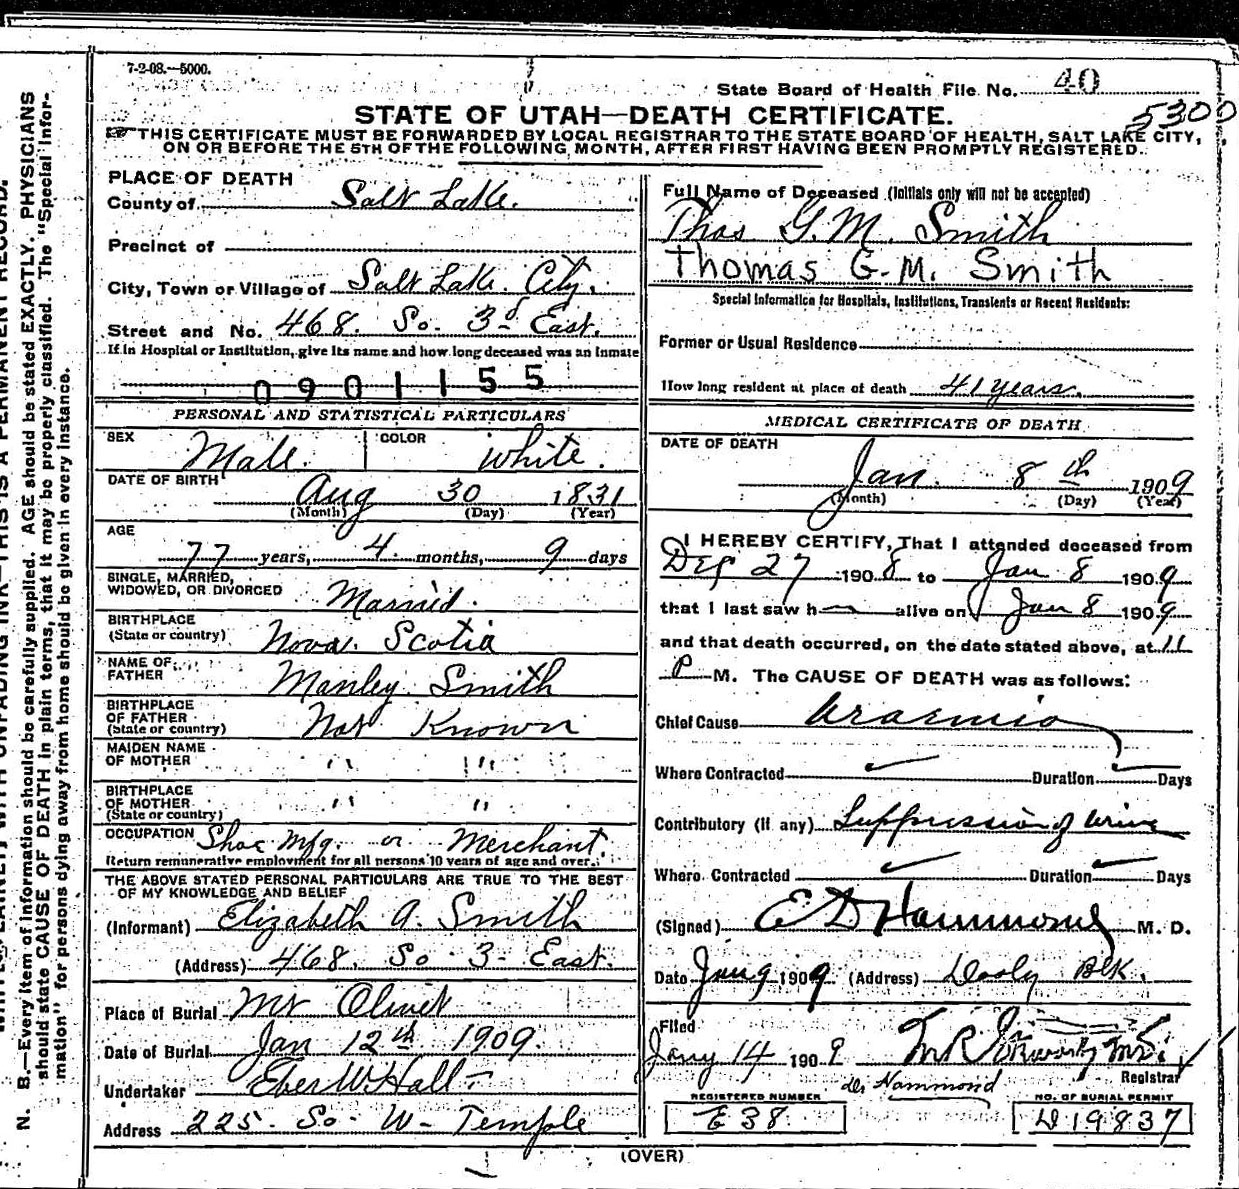 7-2-08.—5000.
State Board of Health File No. 40
5300
STATE OF UTAH—DEATH CERTIFICATE.
THIS CERTIFICATE MUST BE FORWARDED BY LOCAL REGISTRAR TO THE STATE BOARD OF HEALTH, SALT LAKE CITY,
ON OR BEFORE THE 5TH OF THE FOLLOWING MONTH, AFTER FIRST HAVING BEEN PROMPTLY REGISTERED.
N. B.—Every item of Information should be carefully supplied. AGE should be stated EXACTLY. PHYSICIANS
should state CAUSE OF DEATH in plain terms, that it may be properly classified. The "Special Infor-
mation" for persons dying away from home should be given in every instance.
PLACE OF DEATH
County of Salt Lake.
Precinct of
City, Town or Village of Salt Lake City.
Street and No. 468. So. 3d East.
If in Hospital or Institution, give its name and how long deceased was an Inmate
0901155
PERSONAL AND STATISTICAL PARTICULARS
SEX Male. COLOR White.
DATE OF BIRTH Aug 30 1831
(Month) (Day) (Year)
AGE
77 years, 4 months, 9 days
SINGLE, MARRIED,
WIDOWED, OR DIVORCED Married.
BIRTHPLACE
(State or country) Nova. Scotia
NAME OF
FATHER Manley Smith
BIRTHPLACE
OF FATHER
(State or country) Not Known
MAIDEN NAME
OF MOTHER " "
BIRTHPLACE
OF MOTHER
(State or country) " "
OCCUPATION Shoe Mfg. or Merchant.
Return remunerative employment for all persons 10 years of age and over.
THE ABOVE STATED PERSONAL PARTICULARS ARE TRUE TO THE BEST
OF MY KNOWLEDGE AND BELIEF
(Informant) Elizabeth A. Smith
(Address) 468. So. 3- East.
Place of Burial Mt Olivet
Date of Burial Jan 12th 1909.
Undertaker Eber W Hall
Address 225 So. W- Temple
Full Name of Deceased (Initials only will not be accepted)
Thos G.M. Smith
Thomas G.M. Smith
Special Information for Hospitals, Institutions, Transients or Recent Residents:
Former or Usual Residence
How long resident at place of death 41 years.
MEDICAL CERTIFICATE OF DEATH
DATE OF DEATH
Jan. 8th 1909
(Month) (Day) (Year)
I HEREBY CERTIFY, That I attended deceased from
Dec 27 1908 to Jan 8 1909
that I last saw h alive on Jan 8 1909
and that death occurred, on the date stated above, at 11
P M. The CAUSE OF DEATH was as follows:
Chief Cause Uraemia
Where Contracted Duration Days
Contributory (if any) Suppression of Urine
Where Contracted Duration Days
(Signed) E D Hammond M. D.
Date Jan 9 1909 (Address) Dooly Blk.
Filed
Jany 14 1909
Registrar
Hammond
REGISTERED NUMBER
E 38
NO. OF BURIAL PERMIT
D 19837
(OVER)